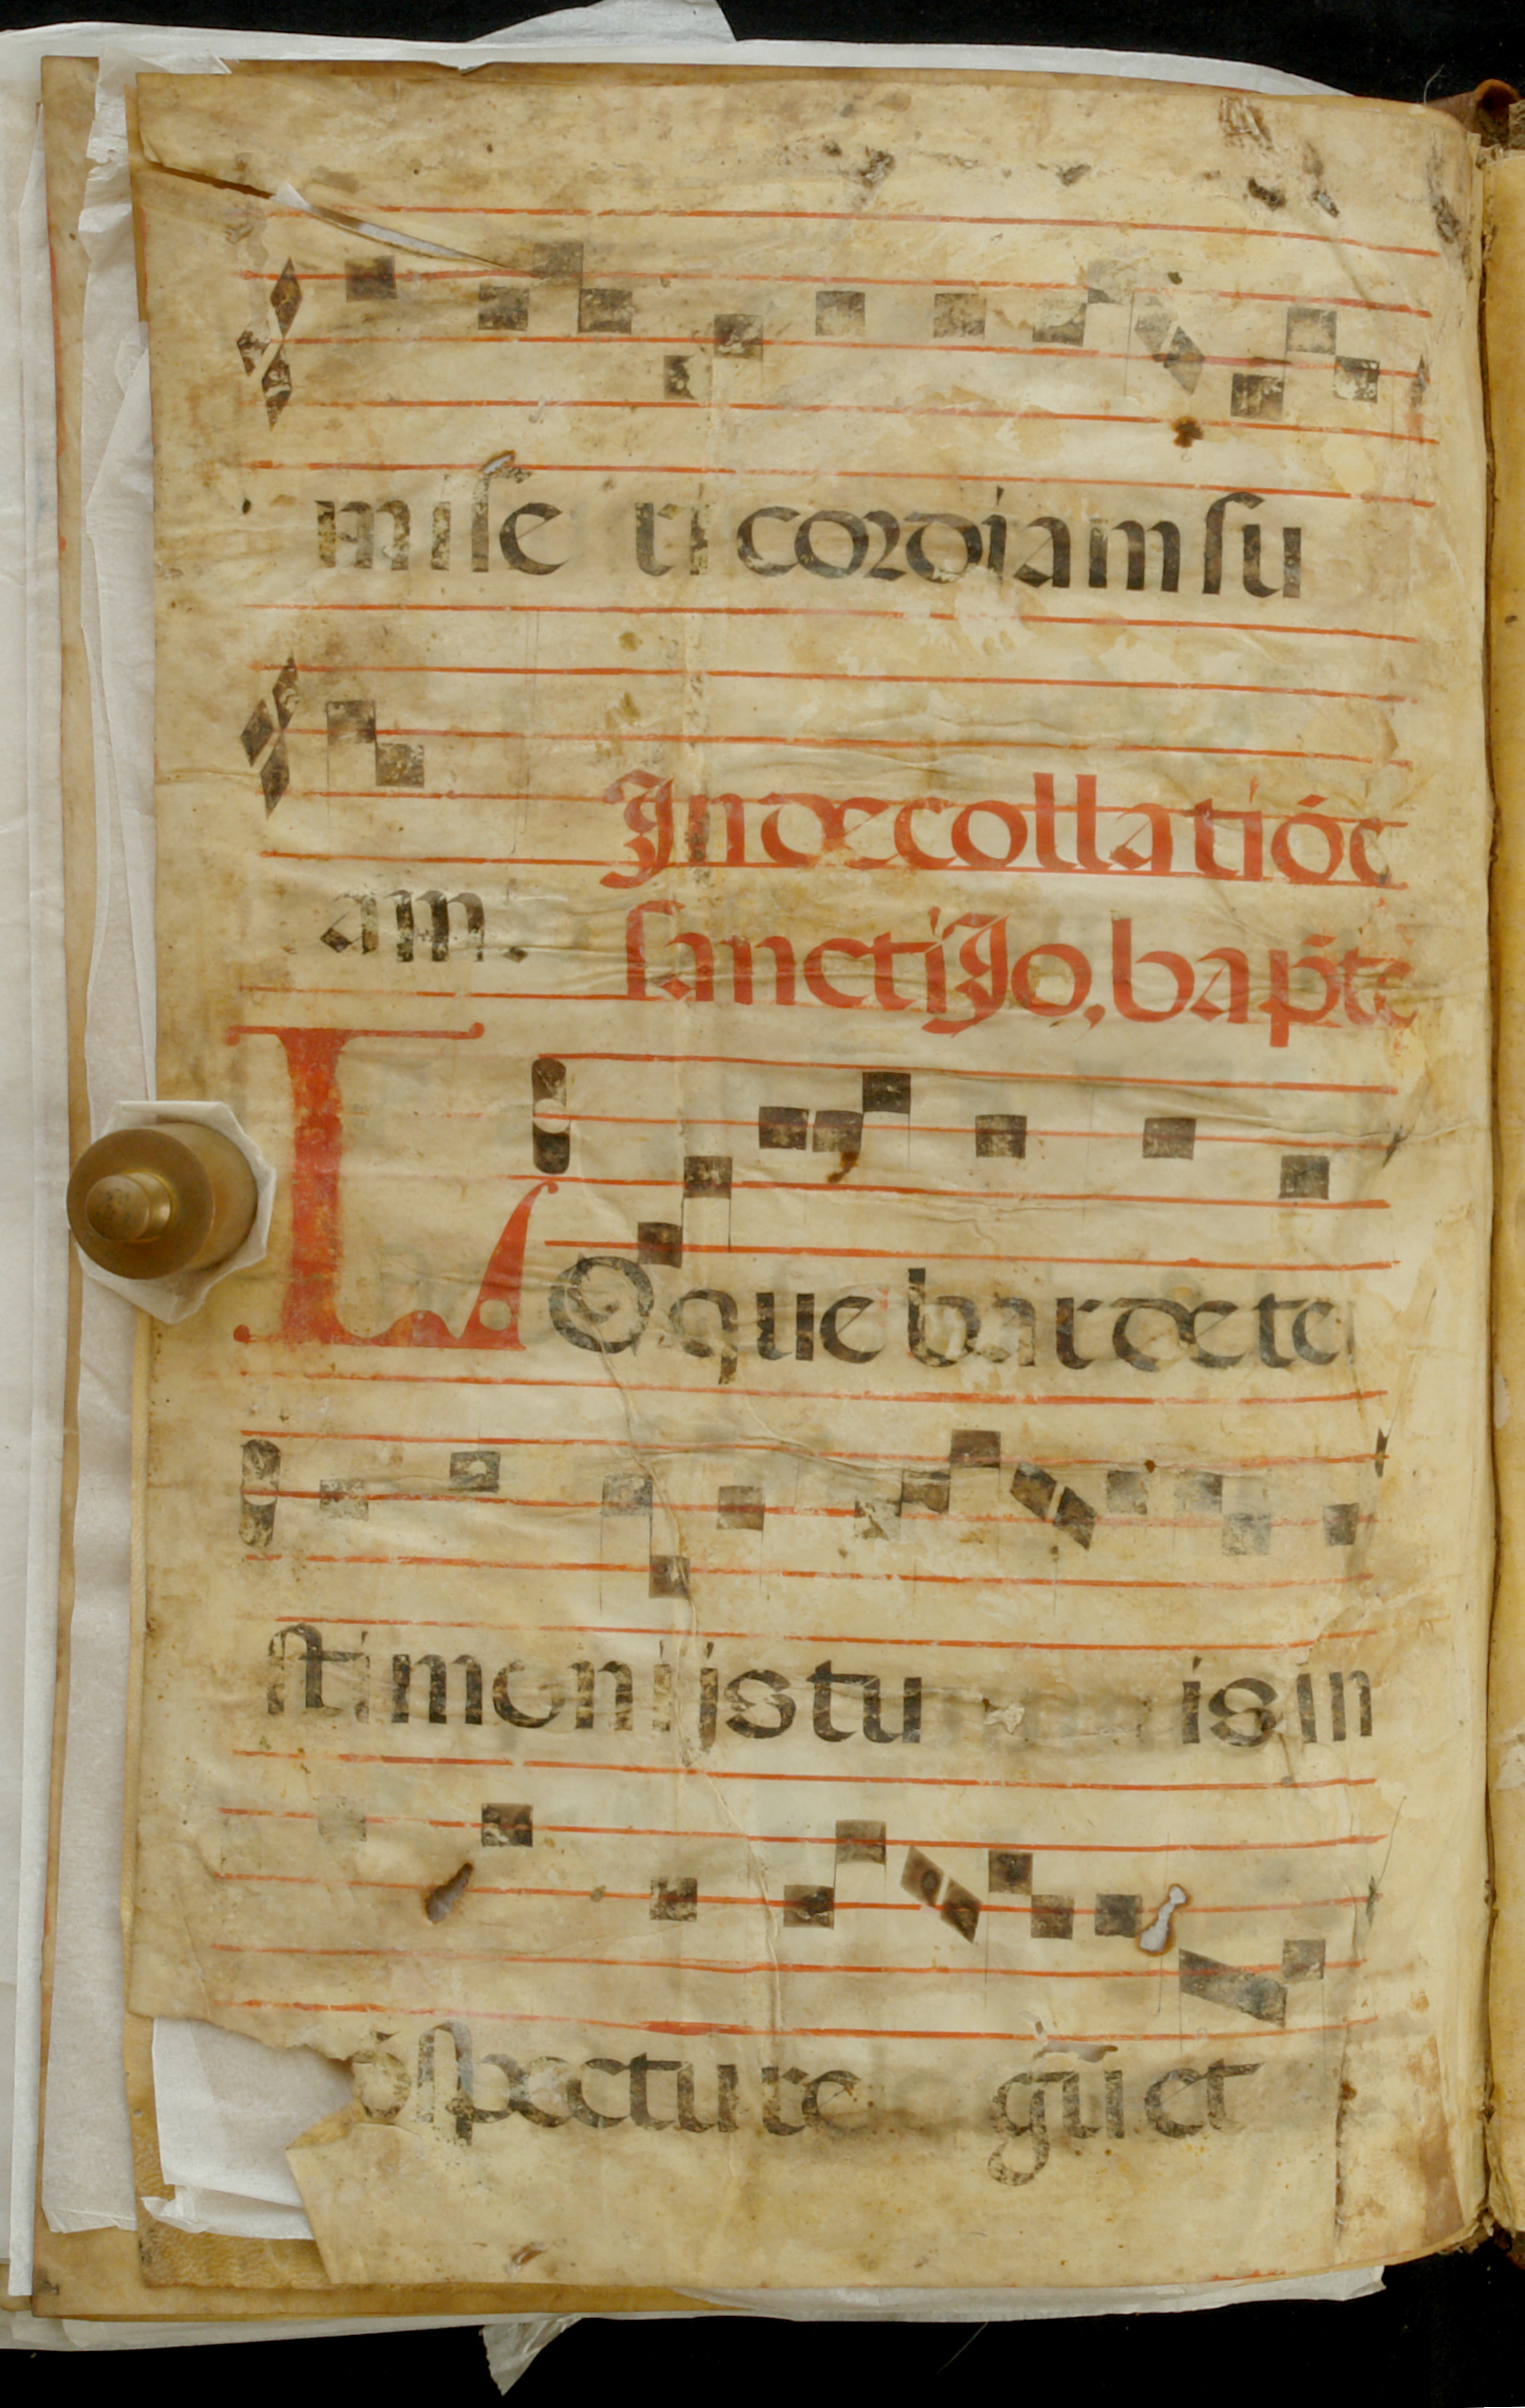 mise ri cordiam su
am.
In decollatióe
sancti Jo, bap̃te
LOquebar de te
stimonijs tu is in
cõspectu re gũ et